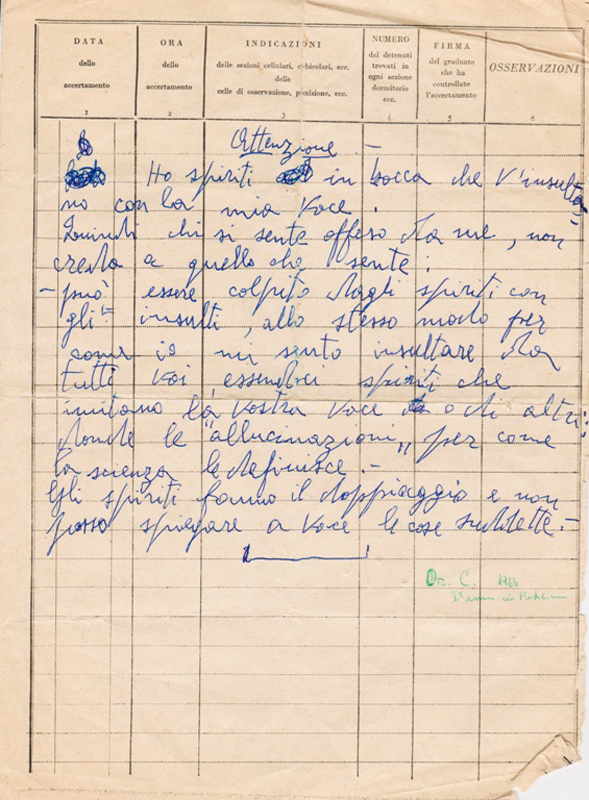 DATA
dello
accertamento
1
ORA
dello
accertamento
2
INDICAZIONI
delle sezioni cellulari, cubicolari, ecc.
delle
celle di osservazione, punizione, ecc.
3
NUMERO
dei detenuti
trovati in
ogni sezione
dormitorio
ecc.
4
FIRMA
del graduato
che ha
controllato
l'accertamento
5
OSSERVAZIONI
6
Attenzione -
Ho spiriti in bocca che v'insulta
no con la mia voce.
Quindi chi si sente offeso da me, non
creda a quello che sente:
- può essere colpito dagli spiriti con
gli insulti, allo stesso modo per
come io mi sento insultare da
tutti voi, essendoci spiriti che
imitano la vostra voce o di altri:
donde le "allucinazioni" per come
la scienza le definisce.-
Gli spiriti fanno il doppiaggio e non
posso spiegare a voce le cose suddette.-
Oz. C. 1963